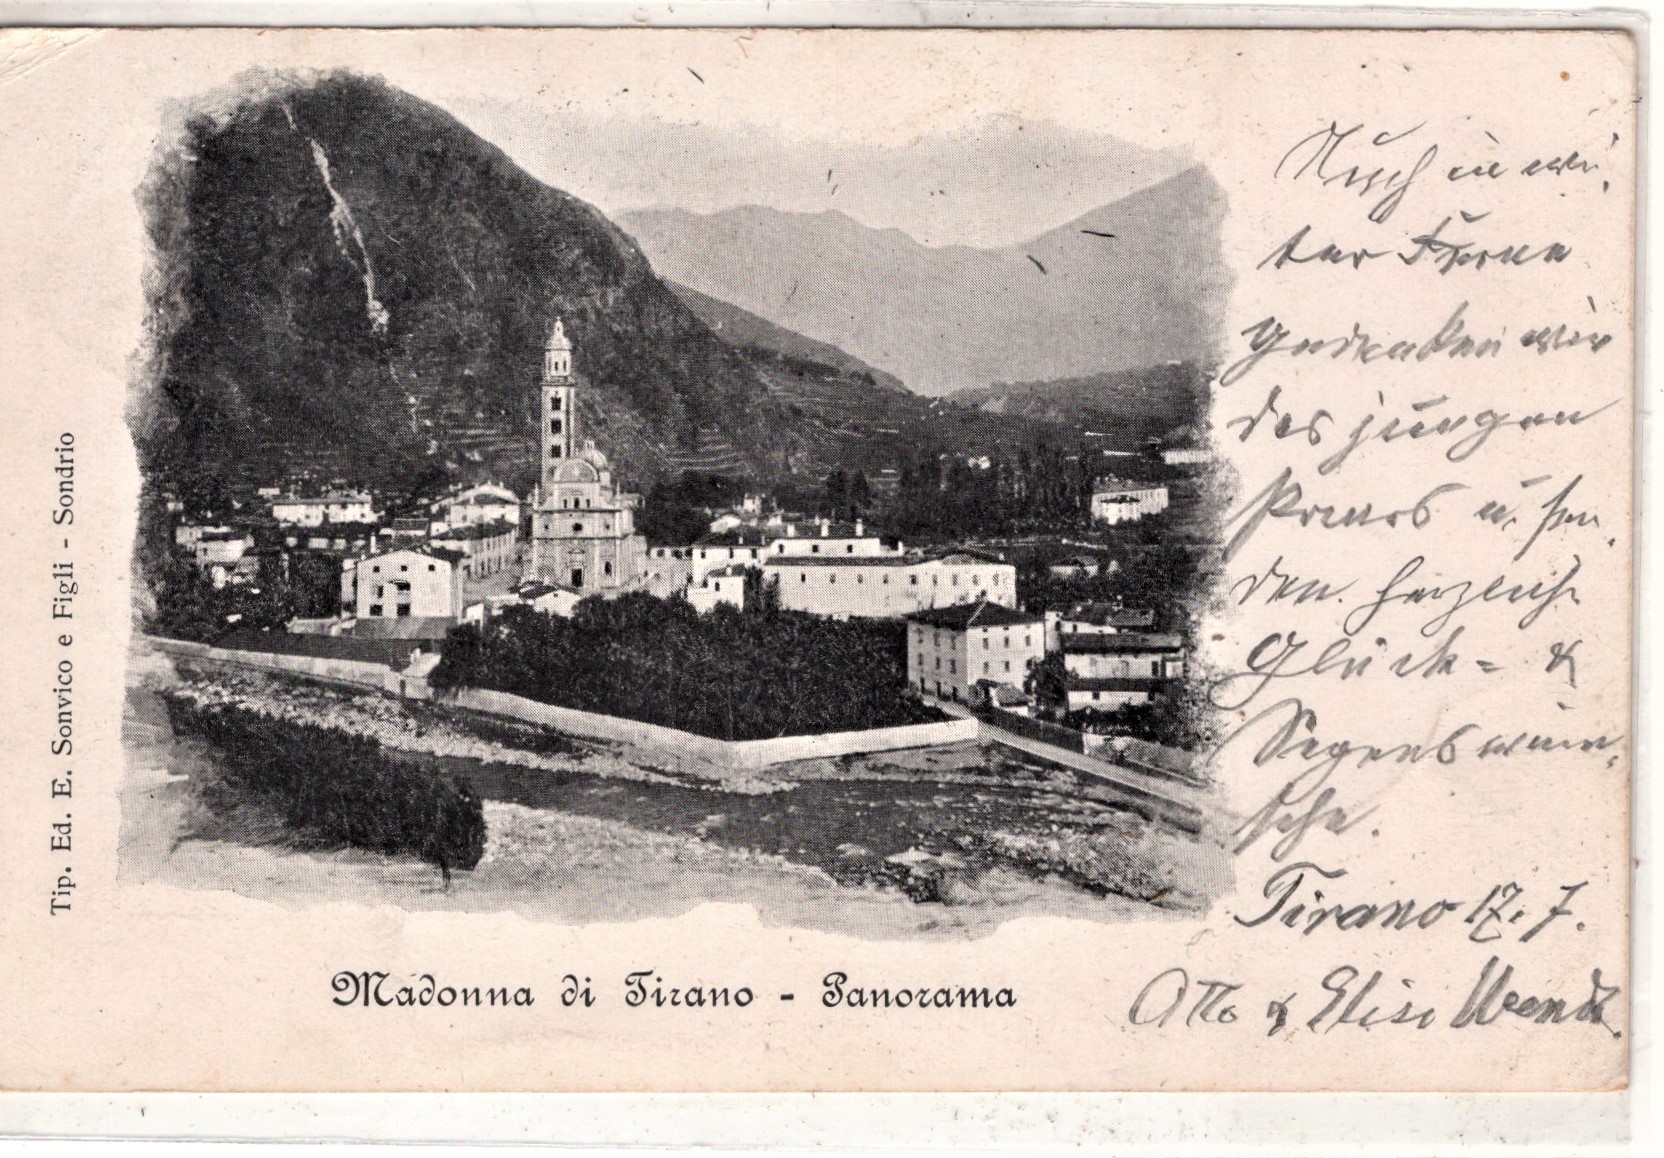 Tip. Ed. E. Sonvico e Figli - Sondrio
Madonna di Tirano - Panorama
Auch in wei-
ter Ferne
gedenken wir
des jungen
Paares u. sen-
den herzlich
Glück- &
Segenswün-
sche.
Tirano 17. 7.
Otto & Elise Wendt.